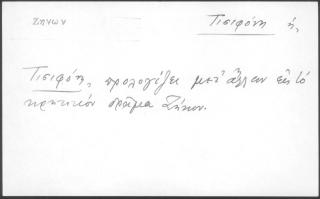 ΖΗΝΩΝ
Τισιφόνη ἡ,
Τισιφόνη, προλογίζει μετ' ἄλλων εἰς τὸ
κρητικὸν δρᾶμα Ζήνων.